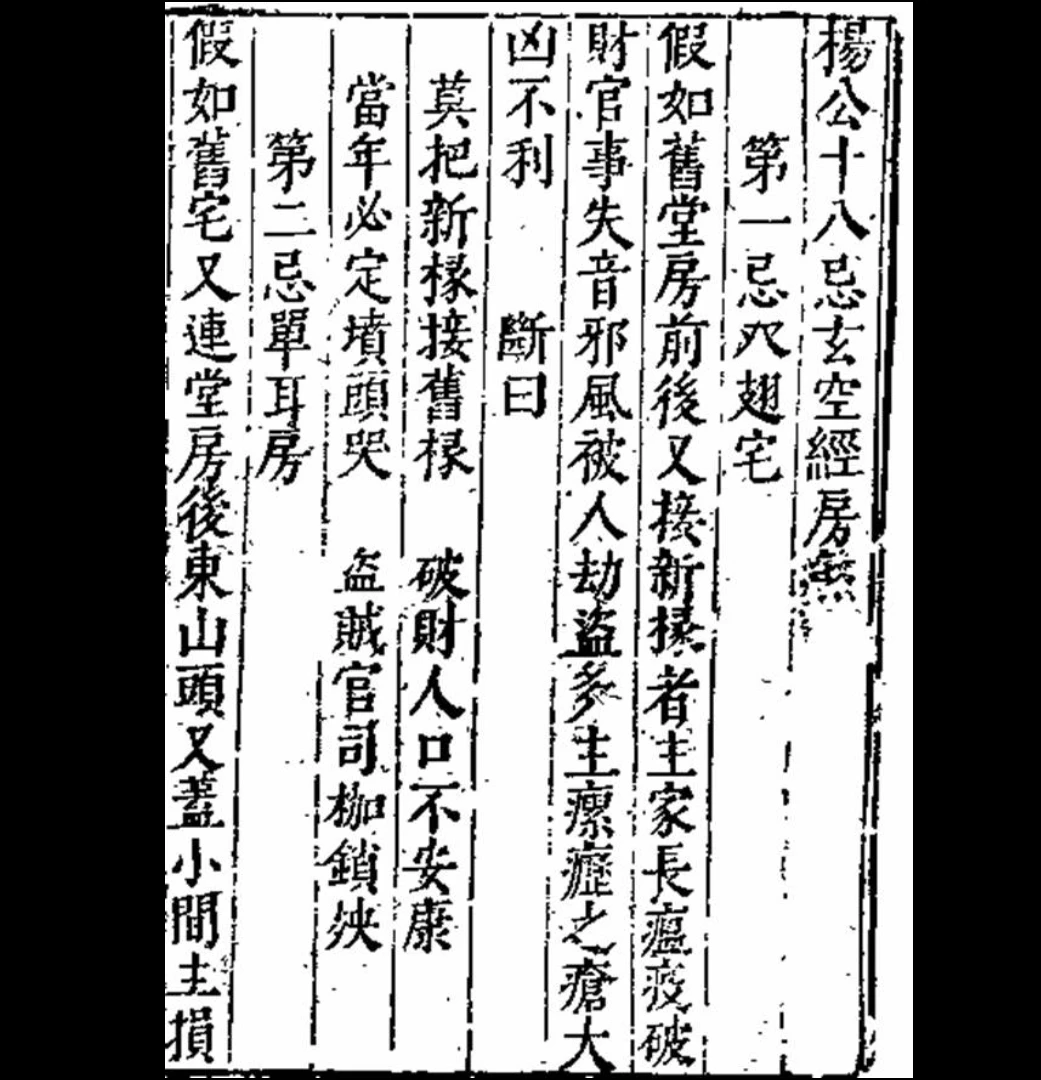 楊公十八忌玄空經房無
第一忌尺翅宅
假如舊堂房前後又接新椽者主家長瘟疫破
財官事失音邪風被人劫盜多主瘰癧之瘡大
凶不利　斷曰
莫把新椽接舊椽　破財人口不安康
當年必定墳頭哭　盗賊官司枷鎖殃
第二忌單耳房
假如舊宅又連堂房後東山頭又蓋小間主損